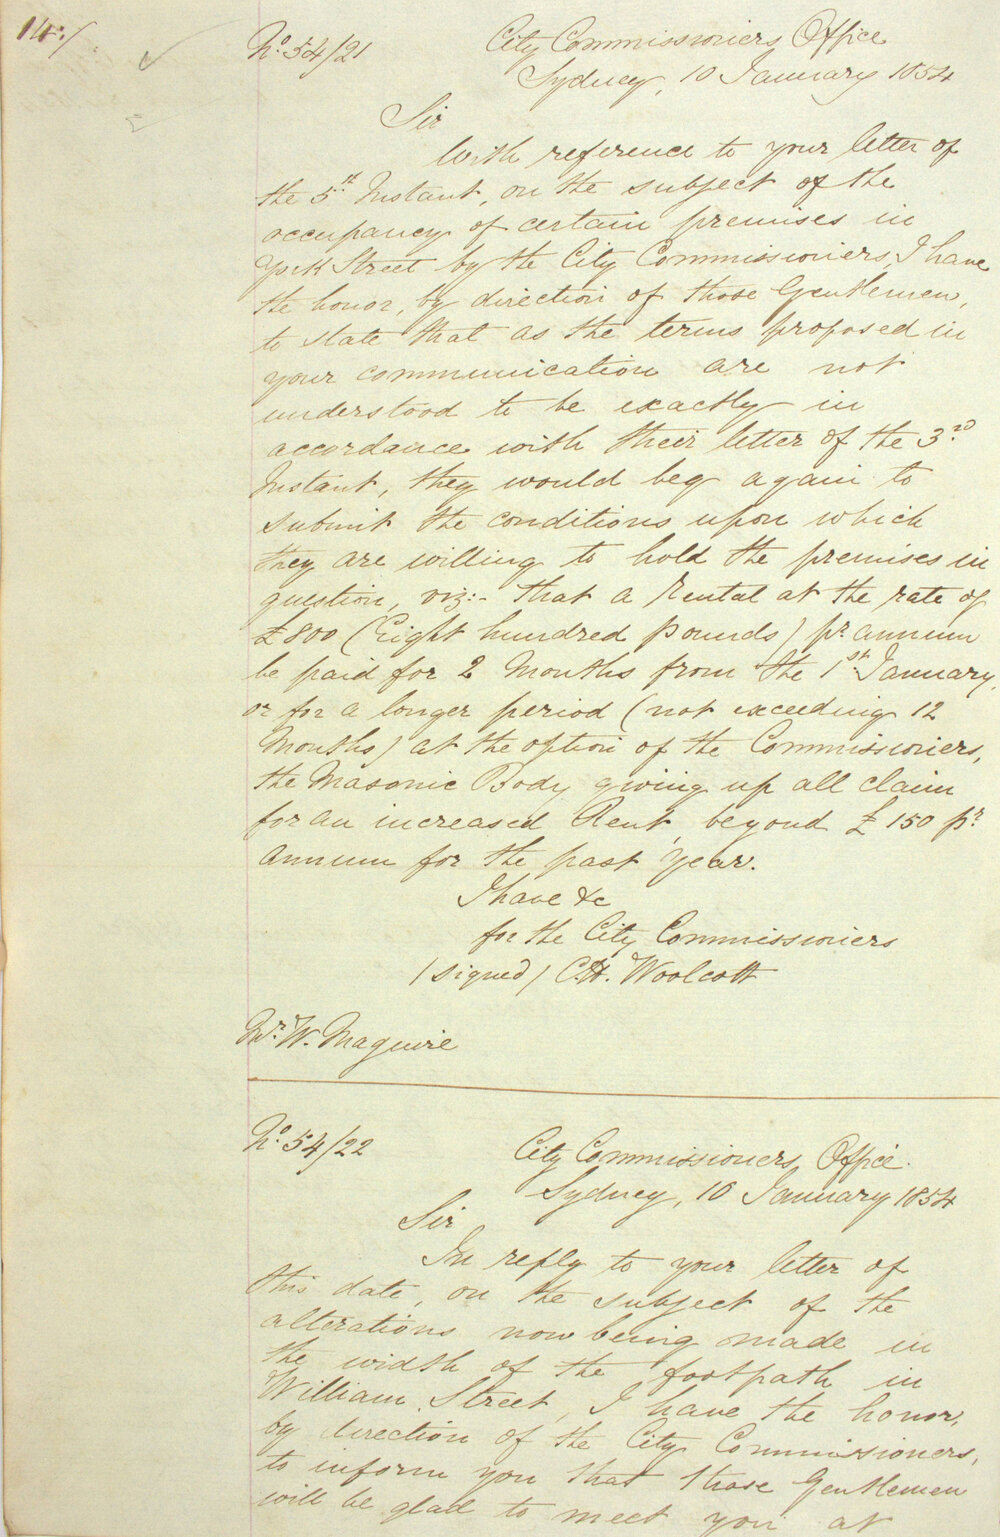 14./
No. 54/21 City Commissioners Office
Sydney, 10 January 1854
Sir
With reference to your letter of
the 5th Instant, on the subject of the
occupancy of certain premises in
York Street by the City Commissioners, I have
the honor, by direction of those Gentlemen,
to state that as the terms proposed in
your communication are not
understood to be exactly in
accordance with their letter of the 3rd
Instant, they would beg again to
submit the conditions upon which
they are willing to hold the premises in
question, viz:- that a Rental at the rate of
£800 (Eight hundred pounds) pr annum
be paid for 2 Months from the 1st January,
or for a longer period (not exceeding 12
Months) at the option of the Commissioners,
the Masonic Body giving up all claim
for an increased Rent, beyond £150 pr
annum for the past year.
I have &c
for the City Commissioners
(signed) C.H. Woolcott
Mr. W. Maguire
No. 54/22 City Commissioners Office.
Sydney, 10 January 1854
Sir
In reply to your letter of
this date, on the subject of the
alterations now being made in
the width of the footpath in
William Street, I have the honor,
by direction of the City Commissioners,
to inform you that those Gentlemen
will be glad to meet you at